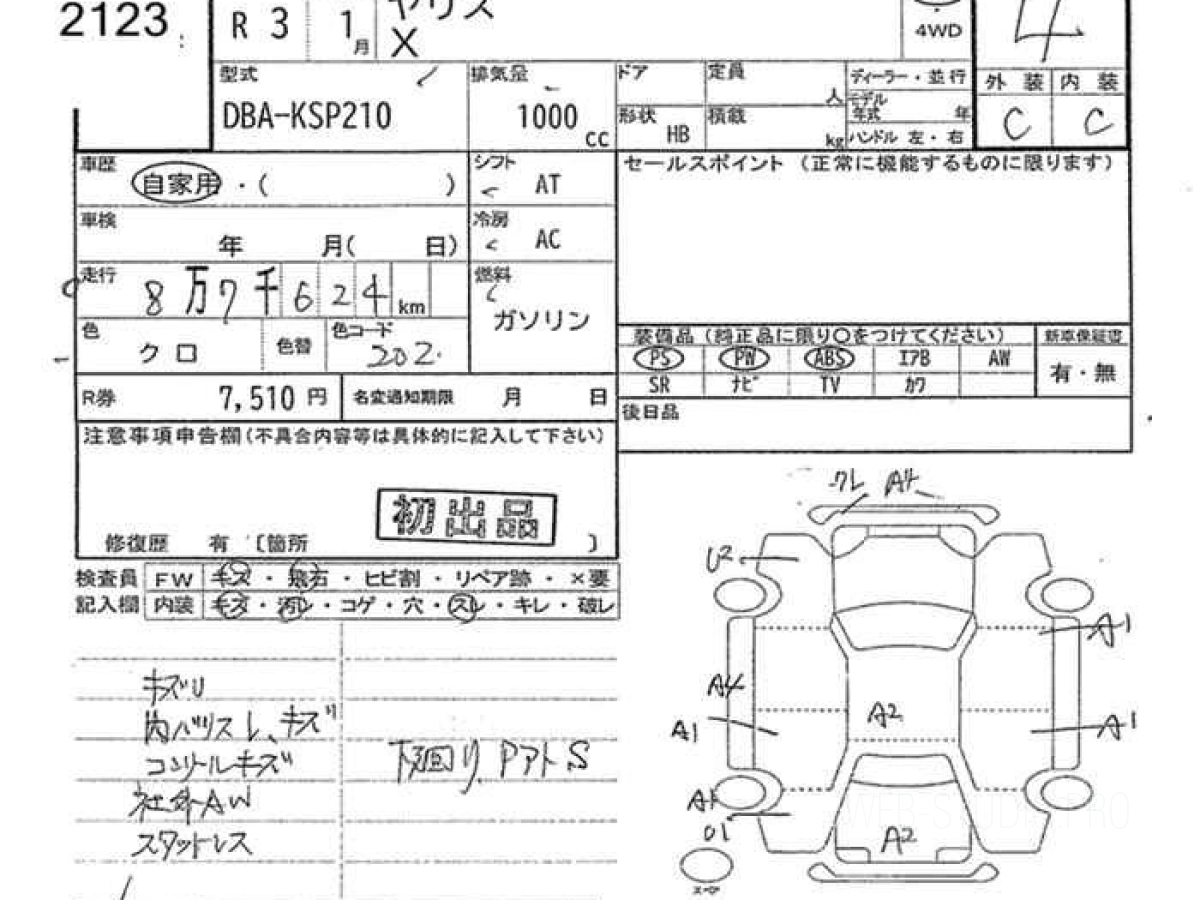 2123
R 3 1月
ヤリス
X
4WD
4
型式 排気量 ドア 定員 人 ディーラー・並行 外装 内装
DBA-KSP210 1000 cc 形状 HB 積載 kg モデル年式 年 C C
ハンドル 左・右
車歴 自家用・( ) シフト AT
セールスポイント (正常に機能するものに限ります)
車検 年 月( 日) 冷房 AC
走行 8万7千624km 燃料 ガソリン
色 クロ 色替 色コード 202.
装備品 (純正品に限り〇をつけてください) 新車保証書
PS PW ABS エアB AW 有・無
SR ナビ TV カワ
R券 7,510円 名変通知期限 月 日
後日品
注意事項申告欄(不具合内容等は具体的に記入して下さい)
初出品
修復歴 有 〔箇所 〕
検査員 FW キズ・飛石・ヒビ割・リペア跡・×要
記入欄 内装 キズ・汚レ・コゲ・穴・スレ・キレ・破レ
キズU
内ハゲスレ、キズ
コンソールキズ
社外AW
スタットレス
下廻り、PアトS
ワレ A4
U2
A1
A4
A1
A2
A1
A1
01
A2
スペア